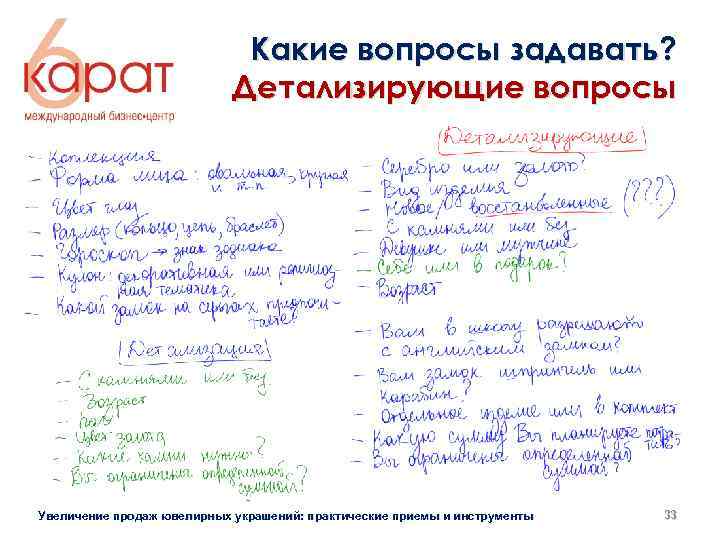 6 карат
международный бизнес•центр
Какие вопросы задавать?
Детализирующие вопросы
– Коллекция
– Форма лица: овальная, круглая и т-п
– Цвет глаз
– Размер (кольцо, цепь, браслет)
– Гороскоп → знак зодиака
– Кулон: декоративная или религиоз-
ная тематика
– Какой замок на серьгах предпочи-
таете?
Детализация
– С камнями или без
– Возраст
– Цвет золота
– Какие камни нужно?
– Вы ограничены определенной
суммой?
Детализирующие
– Серебро или золото?
– Вид изделия
– Новое / восстановленные (???)
– С камнями или без
– Девушке или мужчине
– Себе или в подарок?
– Возраст
– Вам в школу разрешают
с английским замком?
– Вам замок шпрингель или
карабин?
– Отдельное изделие или в комплект
– Какую сумму Вы планируете потра-
тить?
– Вы ограничены определенной
суммой?
Увеличение продаж ювелирных украшений: практические приемы и инструменты
33